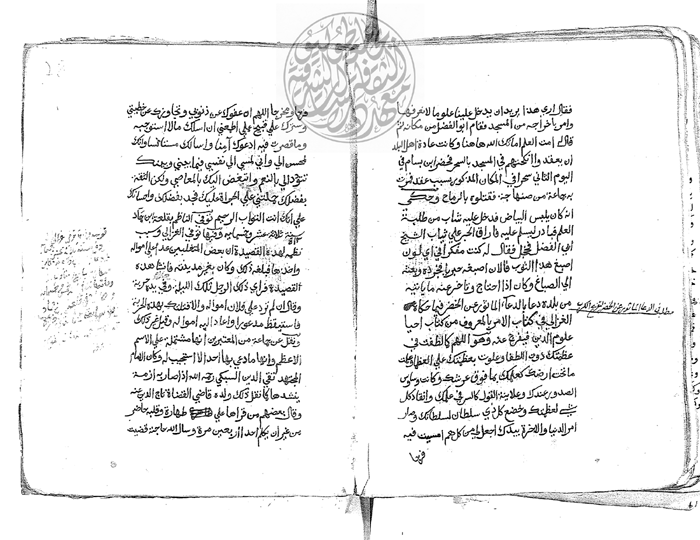 فقال اري هذا يريد ان يدخل علينا علوما لا نعرفها
وامر باخراجه من المسجد فقام ابو الفضل من مكانه ثم
قال امت العلم اماتك الله هاهنا وكانت عادة اهل البلد
ان يعقد والانكحتهم في المسجد بالسحر فحضر ابن بسام في
اليوم الثاني سحرا في المكان المذكور بسبب عقد فمرت
به جماعة من صنهاجة فقتلوه بالرماح وحكي
انه كان يلبس البياض فدخل عليه شاب من طلبة
العلم فبادر يسلم عليه فاراق الحبر علي ثياب الشيخ
ابي الفضل فخجل فقال له كنت مفكرا في اي لون
اصبغ هذا الثوب فالان اصبغه حبريا فجرده وبعثه
الي الصباغ وكان اذا احتاج وتأخر عنه ما ياتيه
من بلده دعا بالدعاء الماثور عن الخضر فيما حكاه
الغزالي في كتاب الامر بالمعروف من كتاب احيا
علوم الدين فيفرج عنه وهو اللهم كما لطفت في
عظمتك دون اللطفا وعلوت بعظمتك علي العظما وعلمت
ما تحت ارضك كعلمك بما فوق عرشك وكانت وساوس
الصدور عندك وعلانية القول كالسر في علمك وانقاد كل
شي لعظمتك وخضع كل ذي سلطان لسلطانك وصار
امر الدنيا والاخرة بيدك اجعل لي من كل هم امسيت فيه
فرجا
مطلب في الدعا الماثور عن الخضر لتفريج الكرب
فرجا ومخرجا اللهم ان عفوك عن ذنوبي وتجاوزك عن خطيئتي
وسترك علي قبيح عملي اطمعني ان اسالك مالا استوجبه
وما قصرت فيه ادعوك آمنا واسالك مستانسا وانك
لمحسن الي واني لمسي الي نفسي فيما بيني وبينك
تتودد الي بالنعم واتبغض اليك بالمعاصي ولكن الثقة
بفضلك حملتني علي الجراة عليك فجد بفضلك واحسانك
علي انك انت التواب الرحيم توفي الناظم بقلعة بني حماد
سنة ثلاثة عشر وخمسماية وقبلها توفي الغزالي وسبب
نظمه لهذه القصيدة ان بعض المتغلبين عدا علي امواله
واخذها فبلغه ذلك وكان بغير مدينته وانشا هذه
القصيدة فراي ذلك الرجل تلك الليلة في يده حربة
وقال ان لم ترد علي فلان امواله والا قتلتك بهذه الحربة
فاستيقظ مذعورا واعاد اليه امواله
ونقل عن جماعة من المعتبرين انها مشتملة علي الاسم
الاعظم وانها ما دعي بها احد الا استجيب له وكان الامام
المجتهد تقي الدين السبكي رحمه الله اذا اصابه ازمة
ينشدها كما نقل ذلك ولده قاضي القضاة تاج الدين عنه
وقال بعضهم من قراها علي طهارة وقلبه حاضر
من غير ان يكلم احدا اربعين مرة وسال الله حاجة قضيت